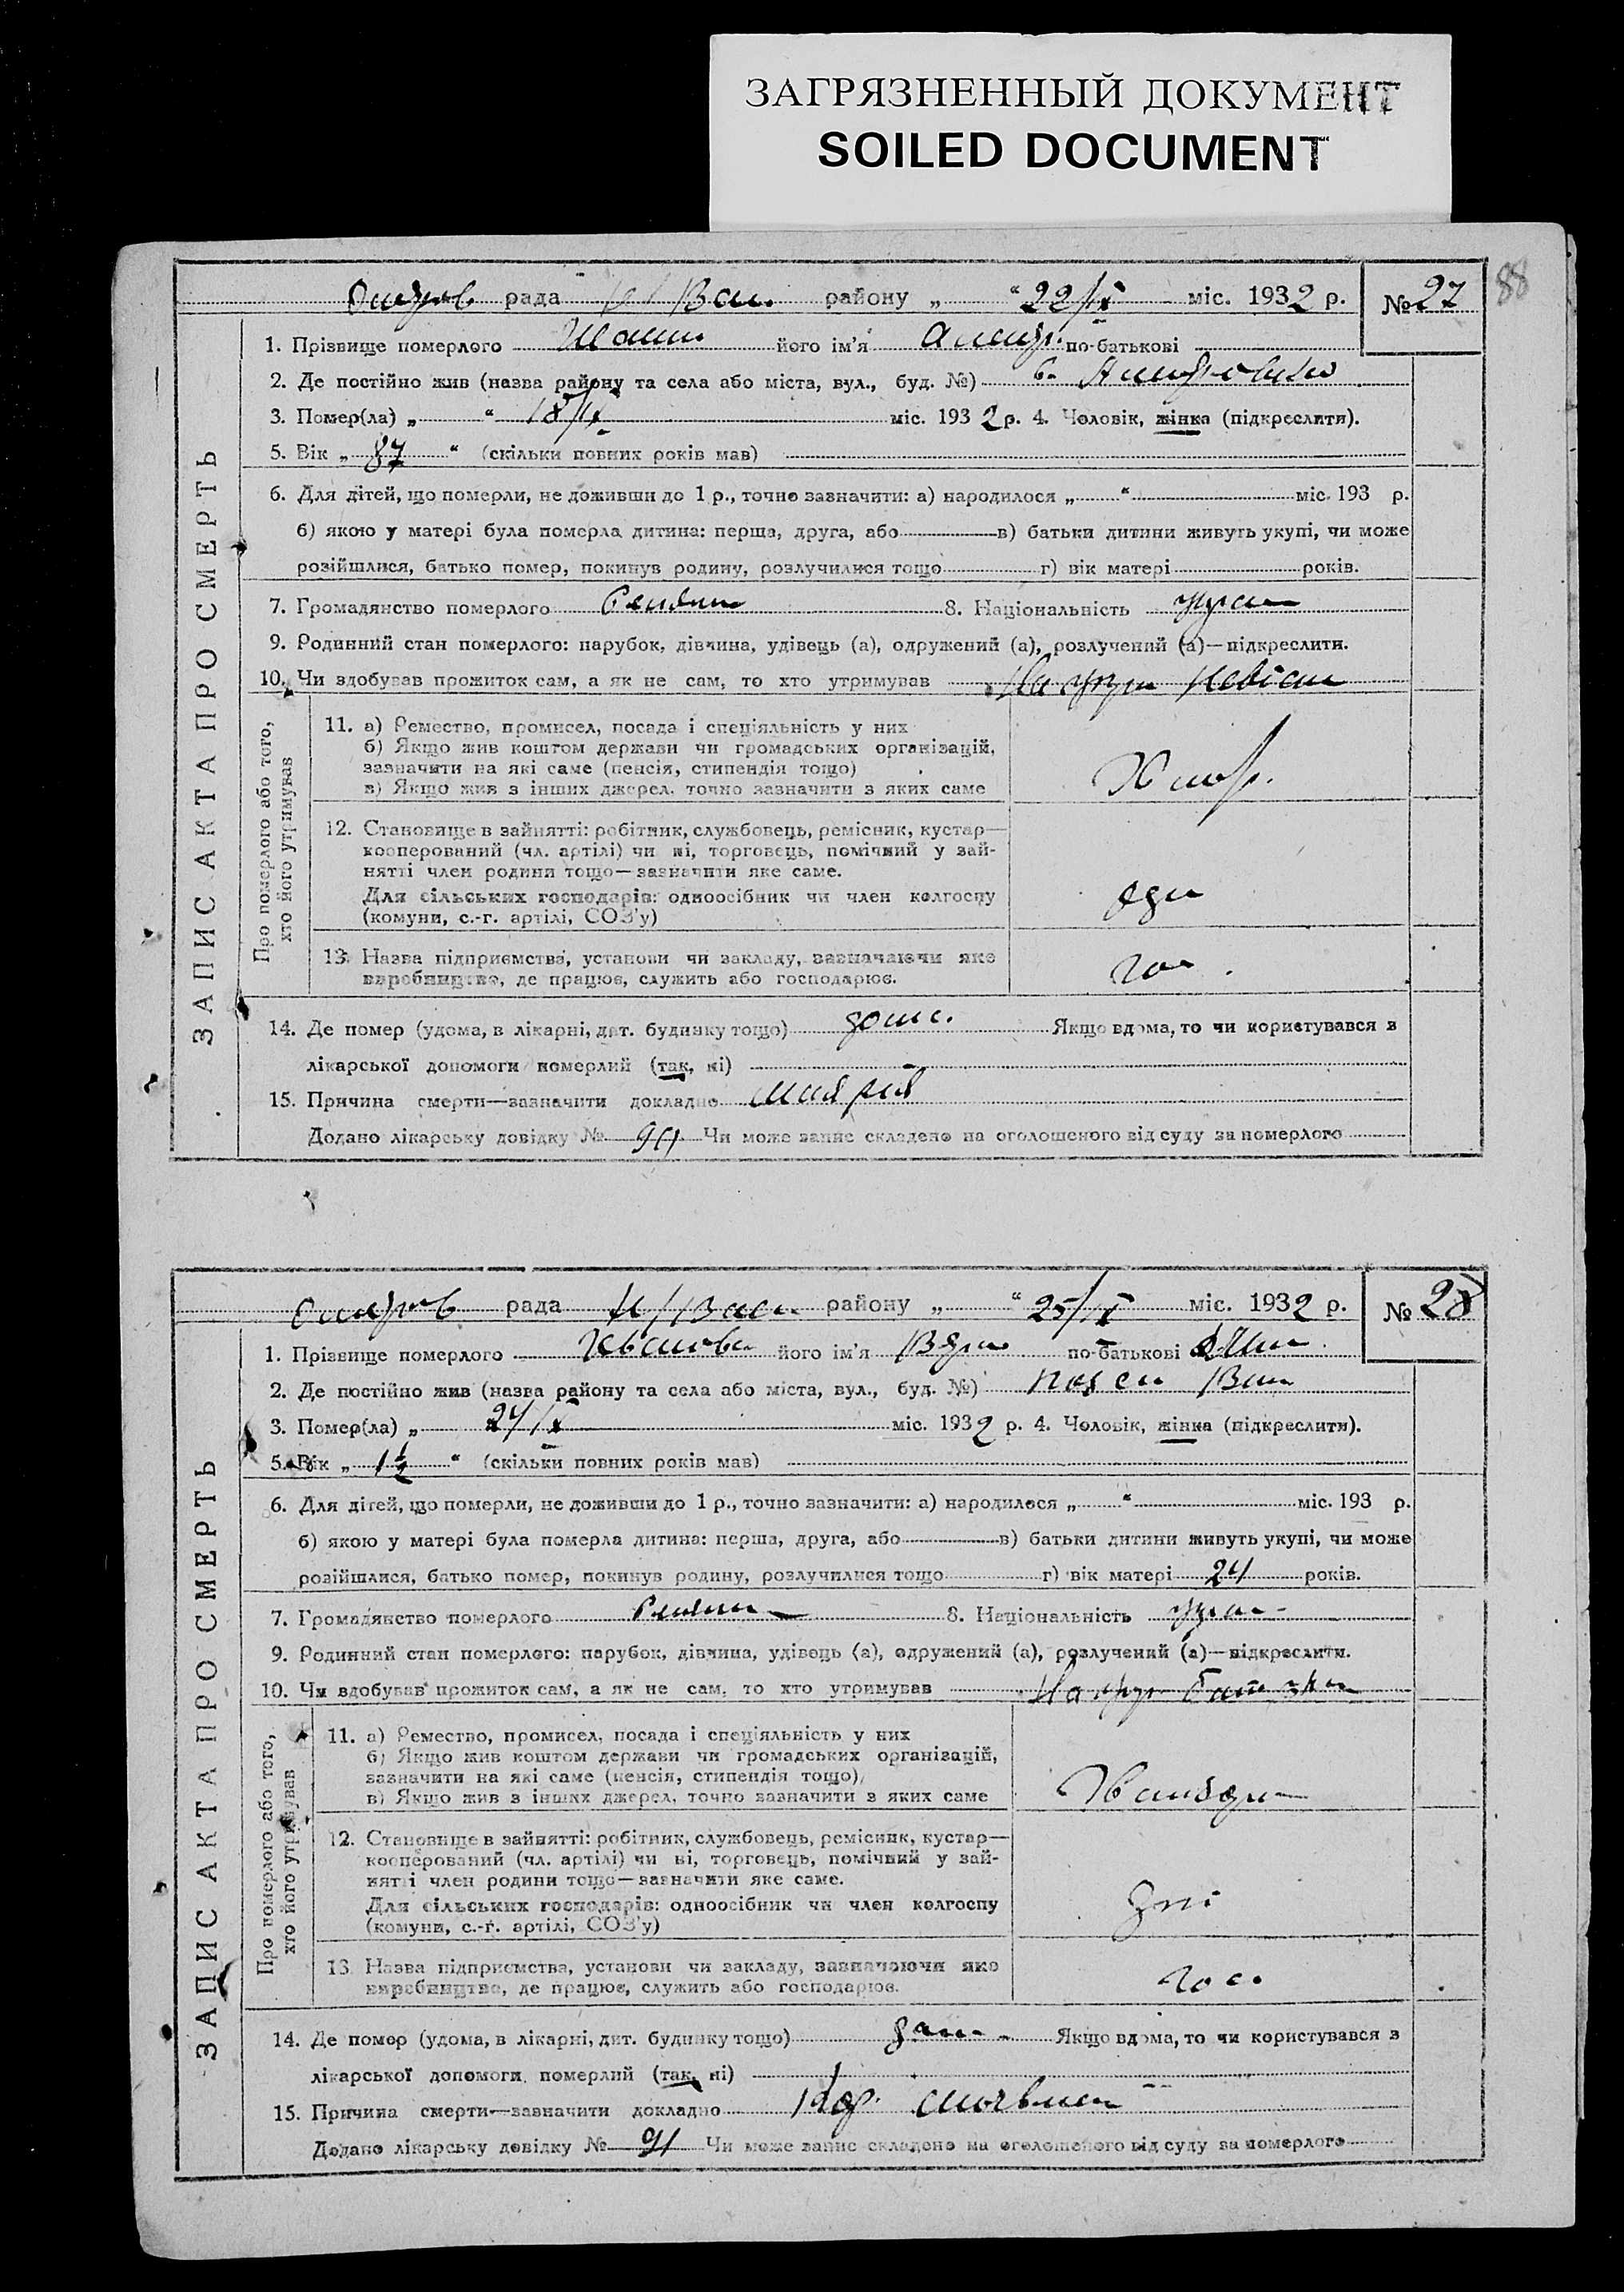 ЗАГРЯЗНЕННЫЙ ДОКУМЕНТ
SOILED DOCUMENT
88
рада район у „ “ 22/IX міс. 1932 р. № 27
ЗАПИС АКТА ПРО СМЕРТЬ
1. Прізвище померлого його ім'я по-батькові
2. Де постійно жив (назва району та села або міста, вул., буд. №)
3. Помер(ла) „ “ 18/IX міс. 1932 р. 4. Чоловік, жінка (підкреслити).
5. Вік „ 87 “ (скільки повних років мав)
6. Для дітей, що померли, не доживши до 1 р., точно зазначити: а) народилося „ “ міс. 193 р.
б) якою у матері була померла дитина: перша, друга, або в) батьки дитини живуть укупі, чи може
розійшлися, батько помер, покинув родину, розлучилися тощо г) вік матері років.
7. Громадянство померлого 8. Національність
9. Родинний стан померлого: парубок, дівчина, удівець (а), одружений (а), розлучений (а)—підкреслити.
10. Чи здобував прожиток сам, а як не сам, то хто утримував
Про померлого або того,
хто його утримував
11. а) Ремество, промисел, посада і спеціяльність у них
б) Якщо жив коштом держави чи громадських організацій,
зазначити на які саме (пенсія, стипендія тощо)
в) Якщо жив з інших джерел, точно зазначити з яких саме
12. Становище в зайнятті: робітник, службовець, ремісник, кустар—
кооперований (чл. артілі) чи ні, торговець, помічний у зай-
нятті член родини тощо—зазначити яке саме.
Для сільських господарів: одноосібник чи член колгоспу
(комуни, с.-г. артілі, СОЗ'у)
13. Назва підприємства, установи чи закладу, зазначаючи яке
виробництво, де працює, служить або господарює.
14. Де помер (удома, в лікарні, дит. будинку тощо) Якщо вдома, то чи користувався з
лікарської допомоги померлий (так, ні)
15. Причина смерти—зазначити докладно
Додано лікарську довідку № 90 Чи може запис складено на оголошеного від суду за померлого
рада району „ “ 25/IX міс. 1932 р. № 28
ЗАПИС АКТА ПРО СМЕРТЬ
1. Прізвище померлого Иванова його ім'я по-батькові
2. Де постійно жив (назва району та села або міста, вул., буд. №)
3. Помер(ла) „ 24/IX міс. 1932 р. 4. Чоловік, жінка (підкреслити).
5. Вік „ 1½ “ (скільки повних років мав)
6. Для дітей, що померли, не доживши до 1 р., точно зазначити: а) народилося „ “ міс. 193 р.
б) якою у матері була померла дитина: перша, друга, або в) батьки дитини живуть укупі, чи може
розійшлися, батько помер, покинув родину, розлучилися тощо г) вік матері 24 років.
7. Громадянство померлого 8. Національність
9. Родинний стан померлого: парубок, дівчина, удівець (а), одружений (а), розлучений (а)—підкреслити.
10. Чи здобував прожиток сам, а як не сам, то хто утримував
Про померлого або того,
хто його утримував
11. а) Ремество, промисел, посада і спеціяльність у них
б) Якщо жив коштом держави чи громадських організацій,
зазначити на які саме (пенсія, стипендія тощо)
в) Якщо жив з інших джерел, точно зазначити з яких саме
12. Становище в зайнятті: робітник, службовець, ремісник, кустар—
кооперований (чл. артілі) чи ні, торговець, помічний у зай-
нятті член родини тощо—зазначити яке саме.
Для сільських господарів: одноосібник чи член колгоспу
(комуни, с.-г. артілі, СОЗ'у)
13. Назва підприємства, установи чи закладу, зазначаючи яке
виробництво, де працює, служить або господарює.
14. Де помер (удома, в лікарні, дит. будинку тощо) Якщо вдома, то чи користувався з
лікарської допомоги померлий (так, ні)
15. Причина смерти—зазначити докладно
Додано лікарську довідку № 91 Чи може запис складено на оголошеного від суду за померлого